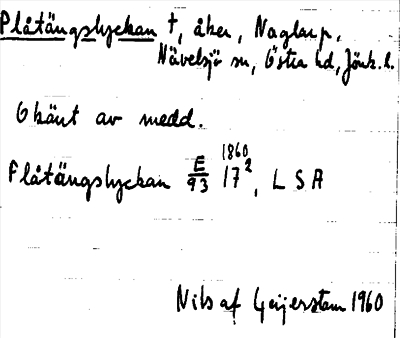 Plåtängslyckan †, åker, Naglarp,
Nävelsjö sn, Östra hd, Jönk. l.
Okänt av medd.
Flåtängslyckan E/93 1860 17², L S A
Nils af Geijerstam 1960